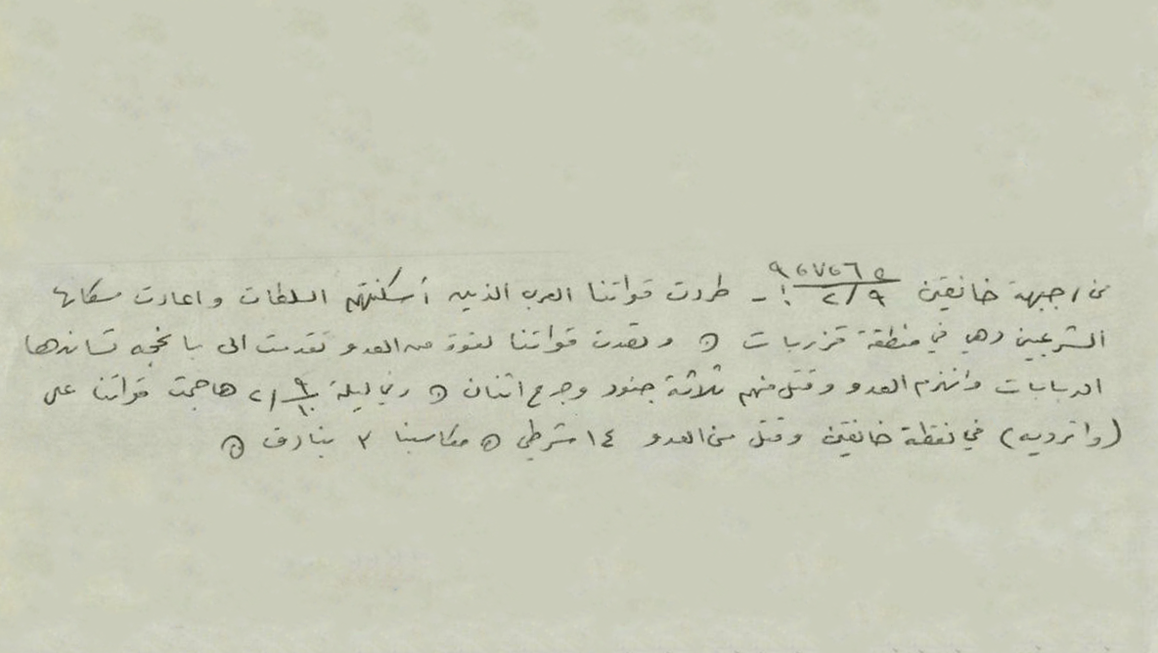 من / جبهة خانقين ٥ ٦ ٥ ٧ ٥ ٩ / ٢/٩ :- طردت قواتنا العرب الذين أسكنتهم السلطات واعادت سكانها
الشرعيين وهي في منطقة قزربات ⊙ وتصدت قواتنا لقوة من العدو تقدمت الى باخچه تساندها
الدبابات وانهزم العدو وقتل منهم ثلاثة جنود وجرح اثنان ⊙ وفي ليلة ٩/١٠ /٢ هاجمت قواتنا على
(واترديه) في نقطة خانقين وقتل من العدو ١٤ شرطي ⊙ مكاسبنا ٣ بنادق ⊙